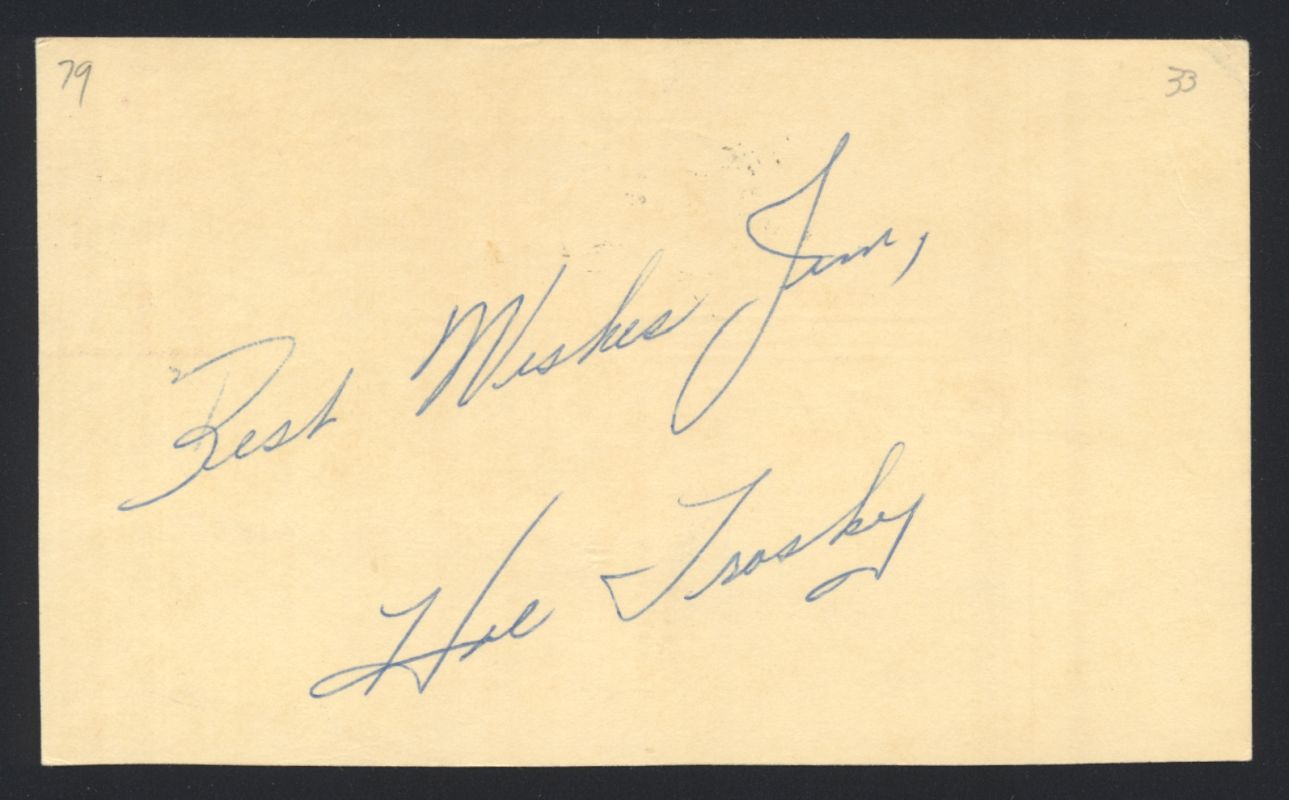 79
33
Best Wishes Jim,
Hal Trosky